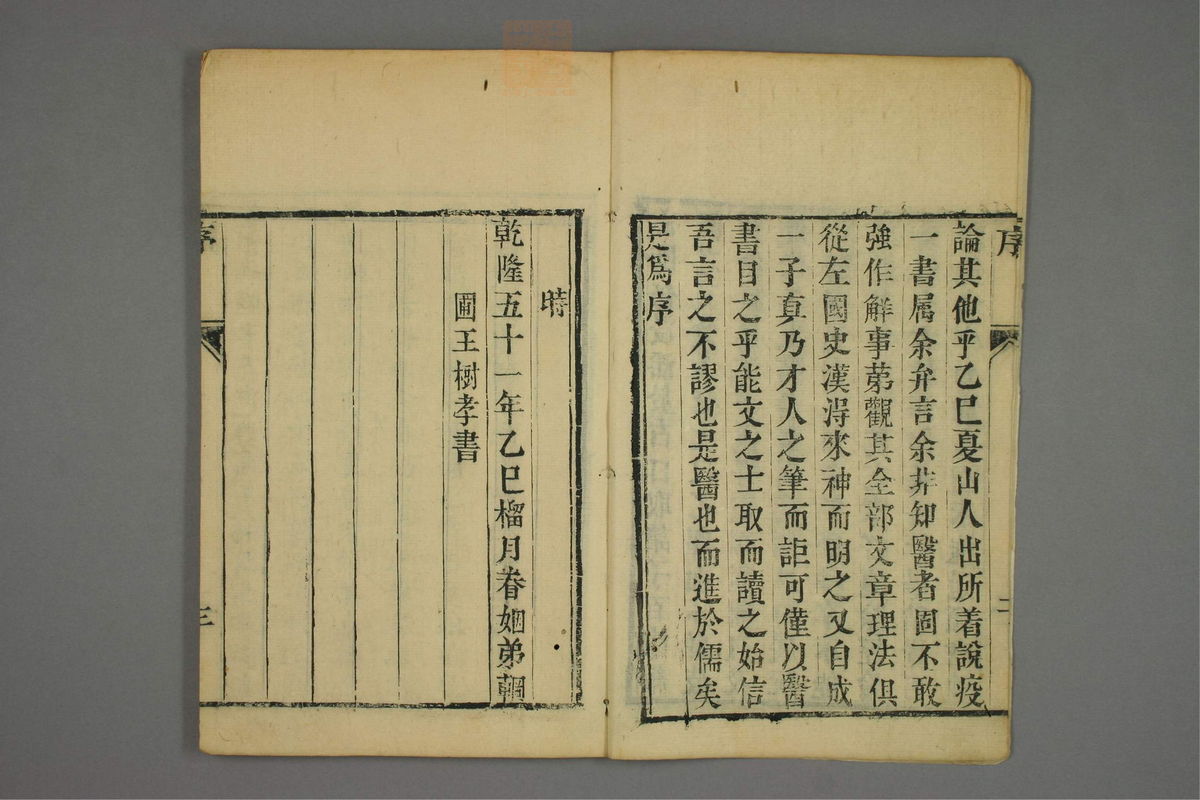 序
二
論其他乎乙巳夏山人出所着說疫
一書属余弁言余非知醫者固不敢
強作解事苐觀其全部文章理法俱
從左國史漢淂來神而明之又自成
一子真乃才人之筆而詎可僅以醫
書目之乎能文之士取而讀之始信
吾言之不謬也是醫也而進於儒矣
是爲序
時
乾隆五十一年乙巳榴月眷姻弟輞
圃王樹孝書
序
三